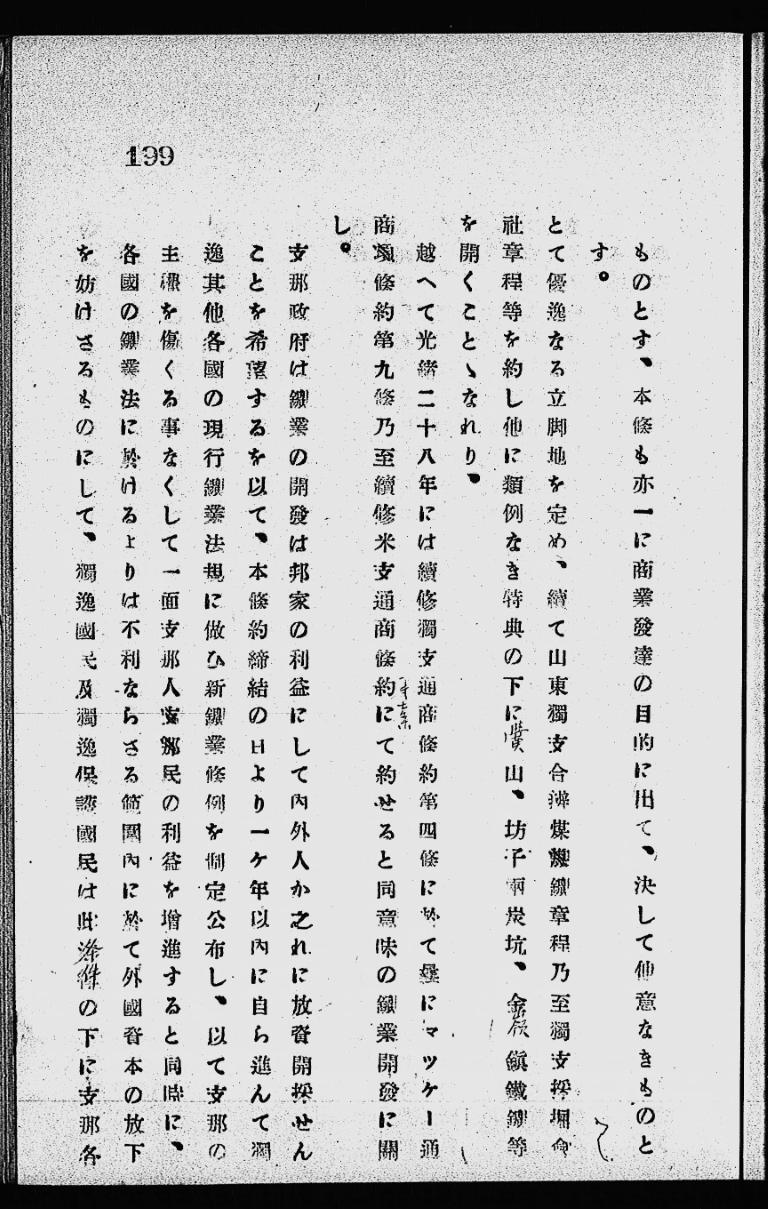 199
ものとす、本條も亦一に商業發達の目的に出て、決して他意なきものと
す。
とて優逸なる立脚地を定め、續て山東獨支合辦煤礦鑛章程乃至獨支採堀會
社章程等を約し他に類例なき特典の下に黌山、坊子兩炭坑、金嶺鎭鐵鑛等
を開くことゝなれり、
越へて光緖二十八年には續修獨支通商條約第四條に於て曩にマッケー通
商條約第九條乃至續修米支通商條約第七條にて約せると同意味の鑛業開發に關
し。
支那政府は鑛業の開發は邦家の利益にして內外人か之れに放資開採せん
ことを希望するを以て、本條約締結の日より一ケ年以內に自ら進んて獨
逸其他各國の現行鑛業法規に倣ひ新鑛業條例を制定公布し、以て支那の
主權を傷くる事なくして一面支那人支那民の利益を增進すると同時に、
各國の鑛業法に於けるよりは不利ならさる範圍內に於て外國資本の放下
を妨けさるものにして、獨逸國民及獨逸保護國民は此條件の下に支那各